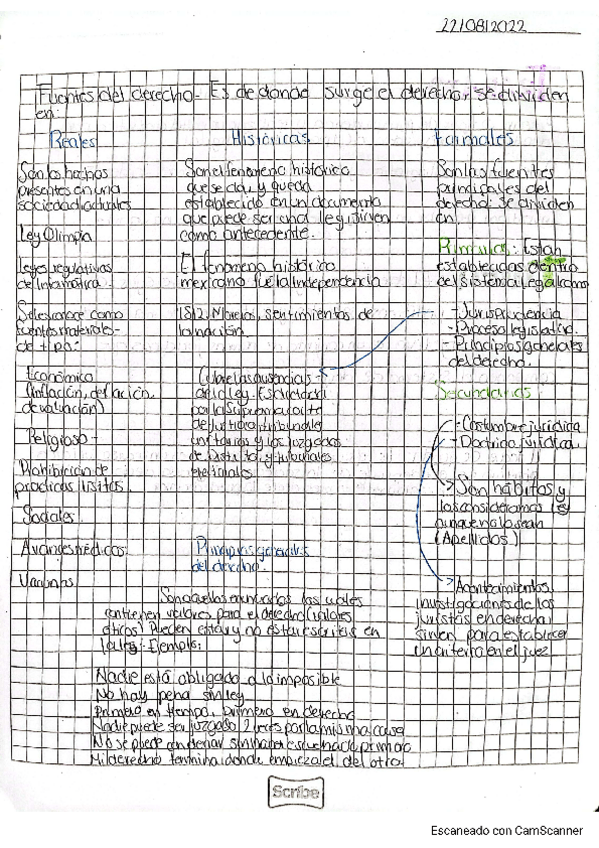 22/08/2022
Fuentes del derecho- Es de donde surge el derecho, se dividen
en:
Reales
Son los hechos
presentes en una
sociedad actuales
Ley Olimpia
Leyes regulativas
de informatica.
Se les conoce como
fuentes materiales-
de tipo:
Económico
(inflación, deflación,
devaluación)
Religioso-
Prohibición de
practicas ilisitas.
Sociales
Avances médicos.
Vacunas
Históricas
Son el fenomeno histórico
que se da, y queda
establecido en un documento
que puede ser una ley y sirven
como antecedente.
El fenomeno histórico
mexicano fue la Independencia
1812. Morelos, sentimientos de
la nación.
Cubre las ausencias-
de la ley. Es creada
por la suprema corte
de justicia, tribunales
unitarios y los juzgados
de distrito, y tribunales
Formales
Son las fuentes
principales del
derecho: se dividen
en
Primarias: Estan
establecidas dentro
del sistema legal como
- Jurisprudencia
- Proceso legislativo.
- Principios generales
del derecho.
Secundarias
- Costumbre jurídica
- Doctrina jurídica.
Son hábitos y
las consideramos ley
aunque no lo sean
(Apellidos)
Acontecimientos,
investigaciones de los
juristas en derecho,
sirven para establecer
un criterio en el juez
Principios generales
del derecho.
Son aquellos enunciados los cuales
contienen valores para el derecho (valores
éticos) Pueden estar y no estar escritos en
la ley. Ejemplo:
Nadie está obligado a lo imposible
No hay pena sin ley
Primero en tiempo, primero en derecho
Nadie puede ser juzgado 2 veces por la misma causa
No se puede condenar sin haber escuchado primero
Mi derecho termina donde empieza el del otro
Scribe
Escaneado con CamScanner